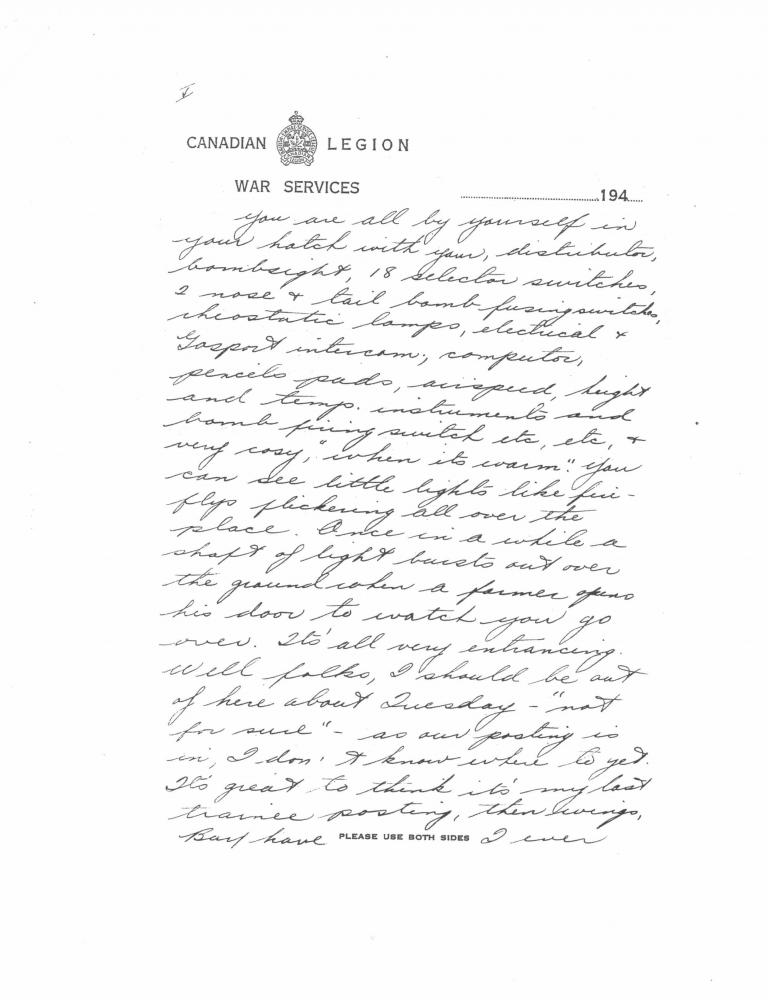 V
CANADIAN LEGION
WAR SERVICES
194
you are all by yourself in
your hatch with your, distributor,
bombsight, 18 selector switches,
2 nose & tail bomb fusing switches,
rheostatic lamps, electrical &
Gosport intercom;, computor,
pencils pads, airspeed, height
and temp. instruments and
bomb firing switch etc, etc, &
very cosy, "when its warm". You
can see little lights like fire-
flys flickering all over the
place. Once in a while a
shaft of light bursts out over
the ground when a farmer opens
his door to watch you go
over. Its' all very entrancing.
Well folks, I should be out
of here about Tuesday - "not
for sure" - as our posting is
in, I don't know where to yet.
Its great to think it's my last
trainee posting, then wings,
Boy have I ever
PLEASE USE BOTH SIDES